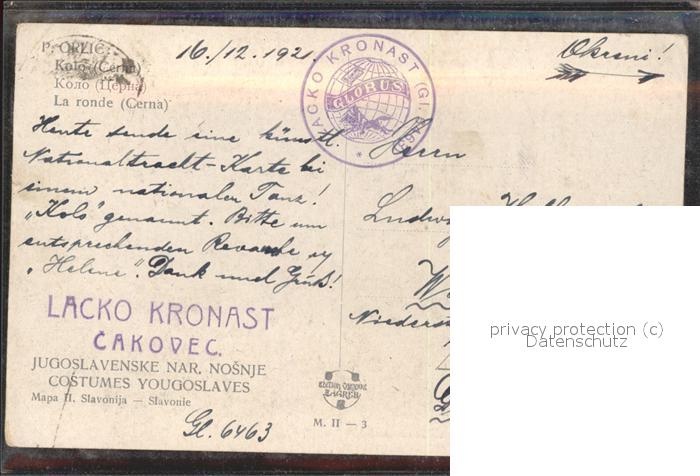 P. ORLIĆ:
Kolo (Cerna)
Коло (Церна)
La ronde (Cerna)
16./12.1921.
LACKO KRONAST (Gl. 6463)
GLOBUS
Okreni!
Heute sende eine künstl.
Nationaltracht-Karte bei
einem nationalen Tanz!
„Kolo" genannt. Bitte um
entsprechenden Revanche
„Helene". Dank und Gruß!
LACKO KRONAST
ČAKOVEC.
JUGOSLAVENSKE NAR. NOŠNJE
COSTUMES YOUGOSLAVES
Mapa II. Slavonija — Slavonie
Gl. 6463
Herrn
ZAGREB
M. II — 3
privacy protection (c)
Datenschutz